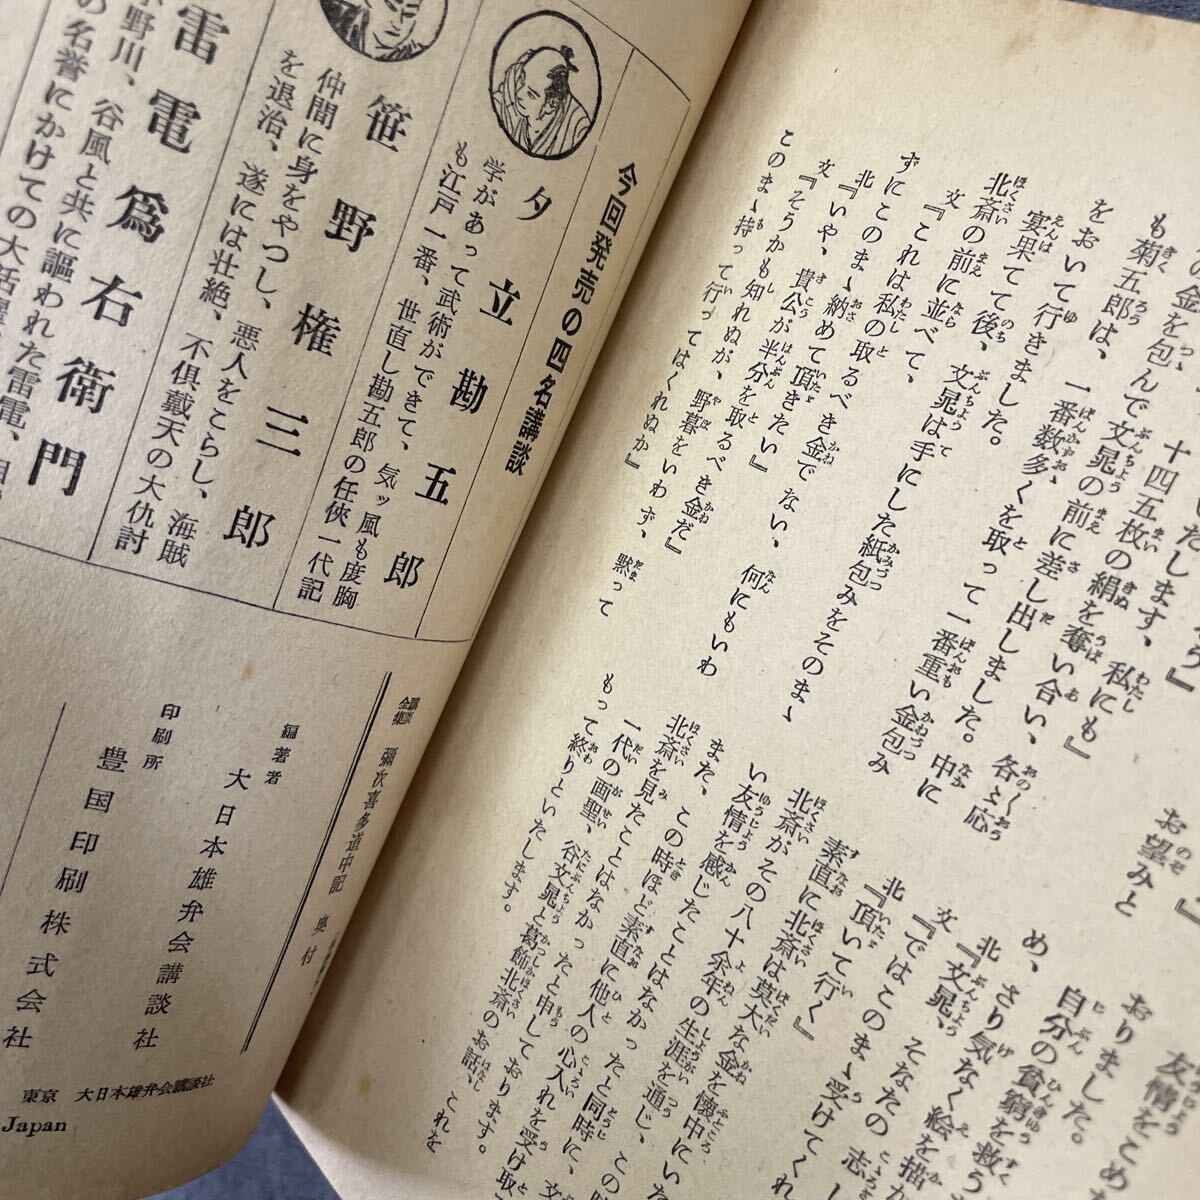 の金を包んで文晁の前に差し出しました。
いたします、私にも』
も菊五郎は、
十四五枚の絹を奪い合い、各〻応
をおいて行きました。
一番数多くを取って一番重い金包み
宴果てて後、文晁は手にした紙包みをそのまゝ
北斎の前に並べて、
文『これは私の取るべき金でない、何にもいわ
ずにこのまゝ納めて頂きたい』
北『いや、貴公が半分を取るべき金だ』
文『そうかも知れぬが、野暮をいわず、黙って
このまゝ持って行ってはくれぬか』
お望みと
友情をこめ
おりました。
自分の貧窮を救う
め、
北さり気なく絵を描か
文『文晁、
北『ではこのまゝ受けてくれ
そなたの志
『頂いて行く』
素直に北斎は莫大な金を懐中にい
北斎がその八十余年の生涯を通じ、この
い友情を感じたことはなかったと同時に、文
また、この時ほど素直に他人の心入れを受け取
北斎を見たことはなかったと申しております。
一代の画聖、谷文晁と葛飾北斎のお話、これを
もって終りといたします。
今回発売の四名講談
夕立勘五郎
学があって武術ができて、気ッ風も度胸
も江戸一番、世直し勘五郎の任俠一代記
笹野権三郎
仲間に身をやつし、悪人をこらし、海賊
を退治、遂には壮絶、不倶戴天の大仇討
雷電爲右衛門
小野川、谷風と共に謳われた雷電、相
の名誉にかけての大活躍
講談全集 彌次喜多道中記 奥村
編著者 大日本雄弁会講談社
印刷所 豊国印刷株式会社
東京 大日本雄弁会講談社
Japan